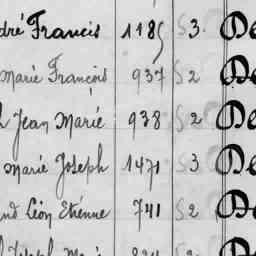 dré Francis 1185 S 3 De
Marie François 937 S 2 De
Jean Marie 938 S 2 De
Marie Joseph 1471 S 3 De
nd Léon Etienne 741 S 2 De
Joseph